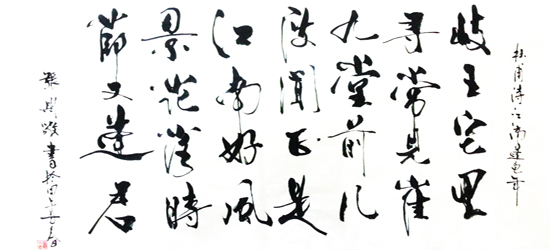 杜甫诗江南逢龟年
岐王宅里
寻常见崔
九堂前几
度闻正是
江南好风
景花落時
節又逢君